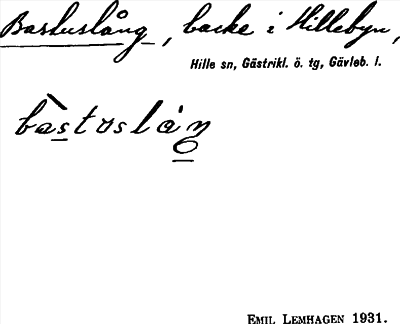 Bastuslång, backe i Hillebyn,
Hille sn, Gästrikl. ö. tg, Gävleb. l.
bàstɷsláŋ
EMIL LEMHAGEN 1931.